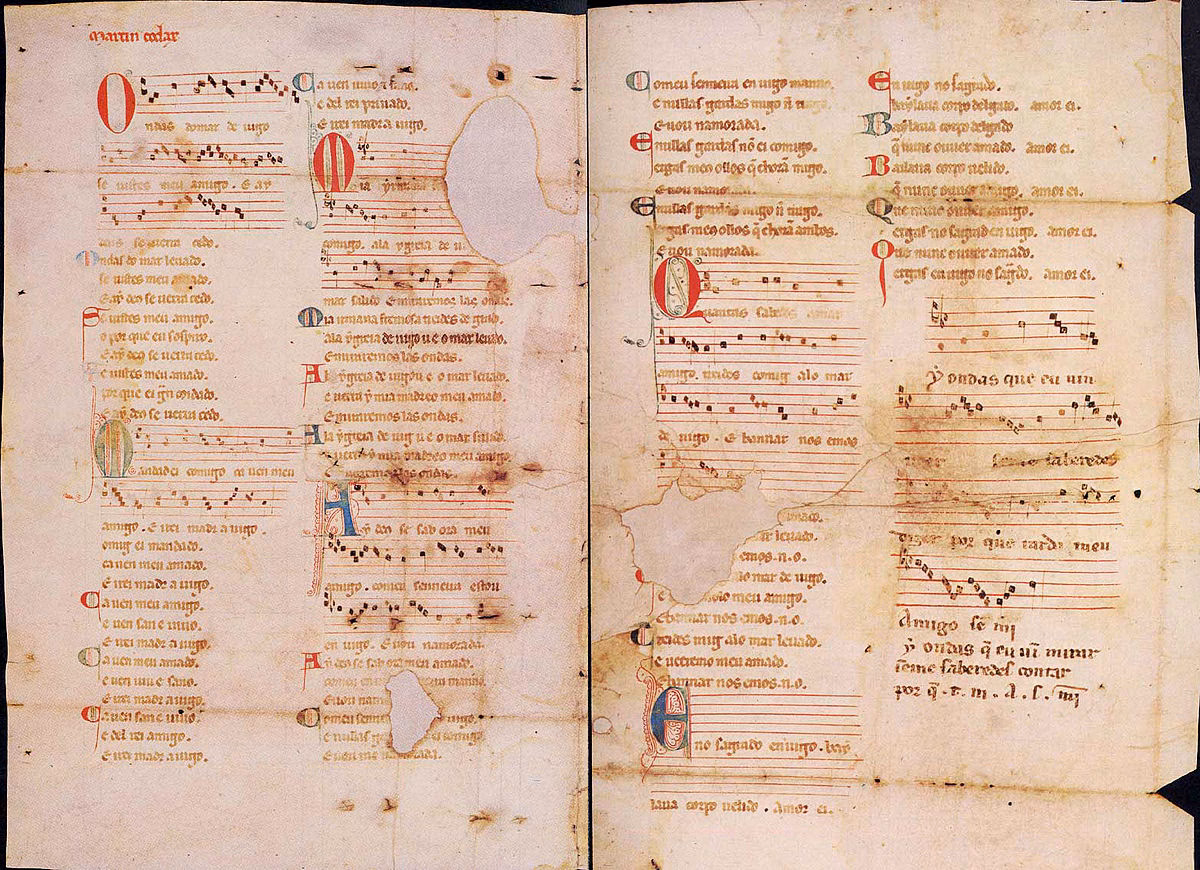 Martin codax
Ondas do mar de uigo
se uistes meu amigo. E ay
deus se uerra cedo.
Ondas do mar leuado.
se uistes meu amado.
E ay deo se uerra cedo.
Se uistes meu amigo.
o por que eu sospiro.
E ay deo se uerra cedo.
Se uistes meu amado.
por que ei gñ coidado.
E ay deo se uerra cedo.
Mandad ei comigo ca uen meu
amigo. E irei madr a uigo.
omig ei mandado.
ca uen meu amado.
E irei madr a uigo.
Ca uen meu amigo.
e uen san e uiuo.
E irei madr a uigo.
Ca uen meu amado.
e uen uiu e sano.
E irei madr a uigo.
Ca uen san e uiuo.
e del rei amigo.
E irei madr a uigo.
Ca uen uiuo e sano.
e del rei priuado.
E irei madr a uigo.
Mia yrmana
comigo. ala ygreia de
mar salido E miraremos las ondas.
Mia irmana fremosa treides de grado.
ala ygreia de uigo u e o mar leuado.
E miraremos las ondas.
A la ygreia de uigo u e o mar leuado.
e uerra y mia madre o meu amado.
E miraremos las ondas.
A la ygreia de uig u e o mar salido.
e uerra y mia madre o meu amigo.
E miraremos las ondas.
Ay deo se sab ora meu
amigo. comeu senneira estou
en uigo. E uou namorada.
Ay deo se sab ora meu amado.
comeu en uigo manno.
E uou nam
Comeu senne uigo.
e nullas g ei comigo.
E uou na
Comeu senneira en uigo manno.
e nullas gardas migo ñ trago.
E uou namorada.
E nullas gardas nõ ei comigo.
ergas meos ollos q̃ chorã migo.
E uou namo
E nullas gardas migo ñ trago.
ergas meos ollos q̃ chorã ambos.
E uou namorada.
Quantas sabedes amar
amigo. treides comig alo mar
de uigo. E bannar nos emos
amado.
ar leuado.
emos.n.o.
lo mar de uigo.
o meu amigo.
E bannar nos emos.n.o.
Treides mig alo mar leuado.
e ueeremo meu amado.
E bannar nos emos.n.o.
Eno sagrado en uigo. bay
laua corpo uelido. Amor ei.
En uigo no sagrado.
baylaua corpo delgado. amor ei.
Baylaua corpo delgado
q̃ nunc ouuer amado. amor ei.
Bailaua corpo uelido.
q̃ nunc ouuer amigo. amor ei.
Que nunc ouuer amigo.
ergas no sagrad en uigo. amor ei.
Que nunc ouuer amado.
ergas en uigo no sagrado. amor ei.
Ay ondas que eu uin
ueer se me saberedes
dizer por que tarda meu
Amigo sē mj
Ay ondas q̃ eu uĩ mirar
se me saberedes contar
por q̃ .t. m. A. s. mj